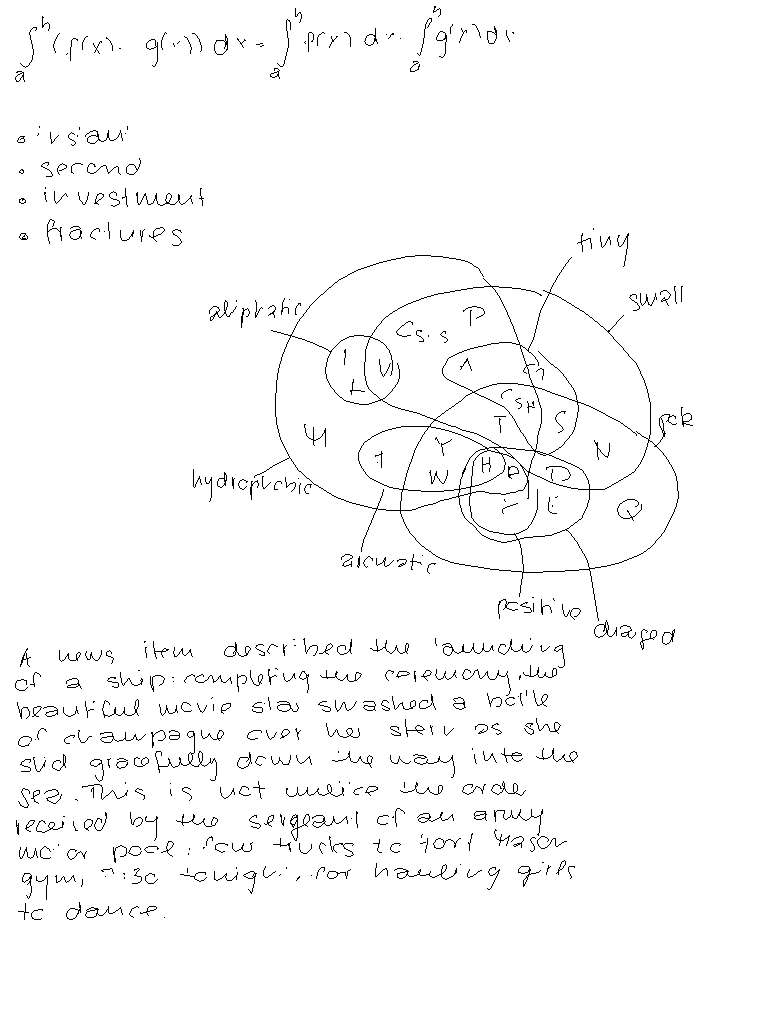 ∫ₐᵇ (f(x) · g(x)) dx = ∫ₐᵇ f(x) dx · ∫ₐᵇ g(x) dx
• instant
• second
• investment
• fractures
tiny
small
aliphatic
P
C S-S
I
V
L
A
G
C SH
S
T
N
pok
M
Y
F
W
H
R
D
K
E
Q
hydrophobic
aromatic
positive
charged
A news item described the launching
of a ship: completing the ceremony, the
beautiful movie star smashed a bottle
of champagne over her stern as she
slid gracefully down the way into the
sea. This is not unlike the order
received by the sergeant of an army
motor pool: four trucks to Fort Mason
gym, 7:30 tonight, for hauling girls
to dance.